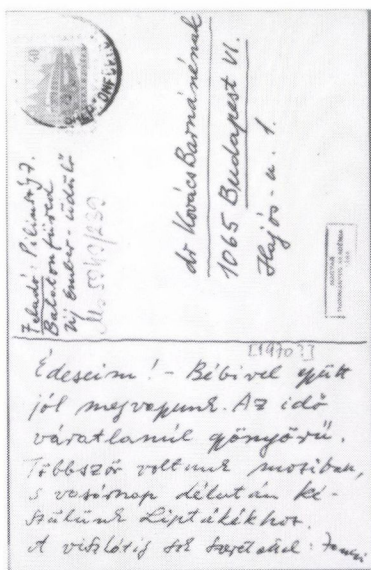 40
Feladó: Pilinszky J.
Balatonfüred
Új Ember-üdülő
Ms 5949/239
dr Kovács Barnánénak
1065 Budapest VI.
Hajós-u. 1.
[1970?]
Édeseim! – Bébivel együtt
jól megvagyunk. Az idő
váratlanúl gyönyörű.
Többször voltunk moziban,
s vasárnap délután ké-
szülünk Liptákékhoz.
A viszlátig sok szeretettel: Jancsi